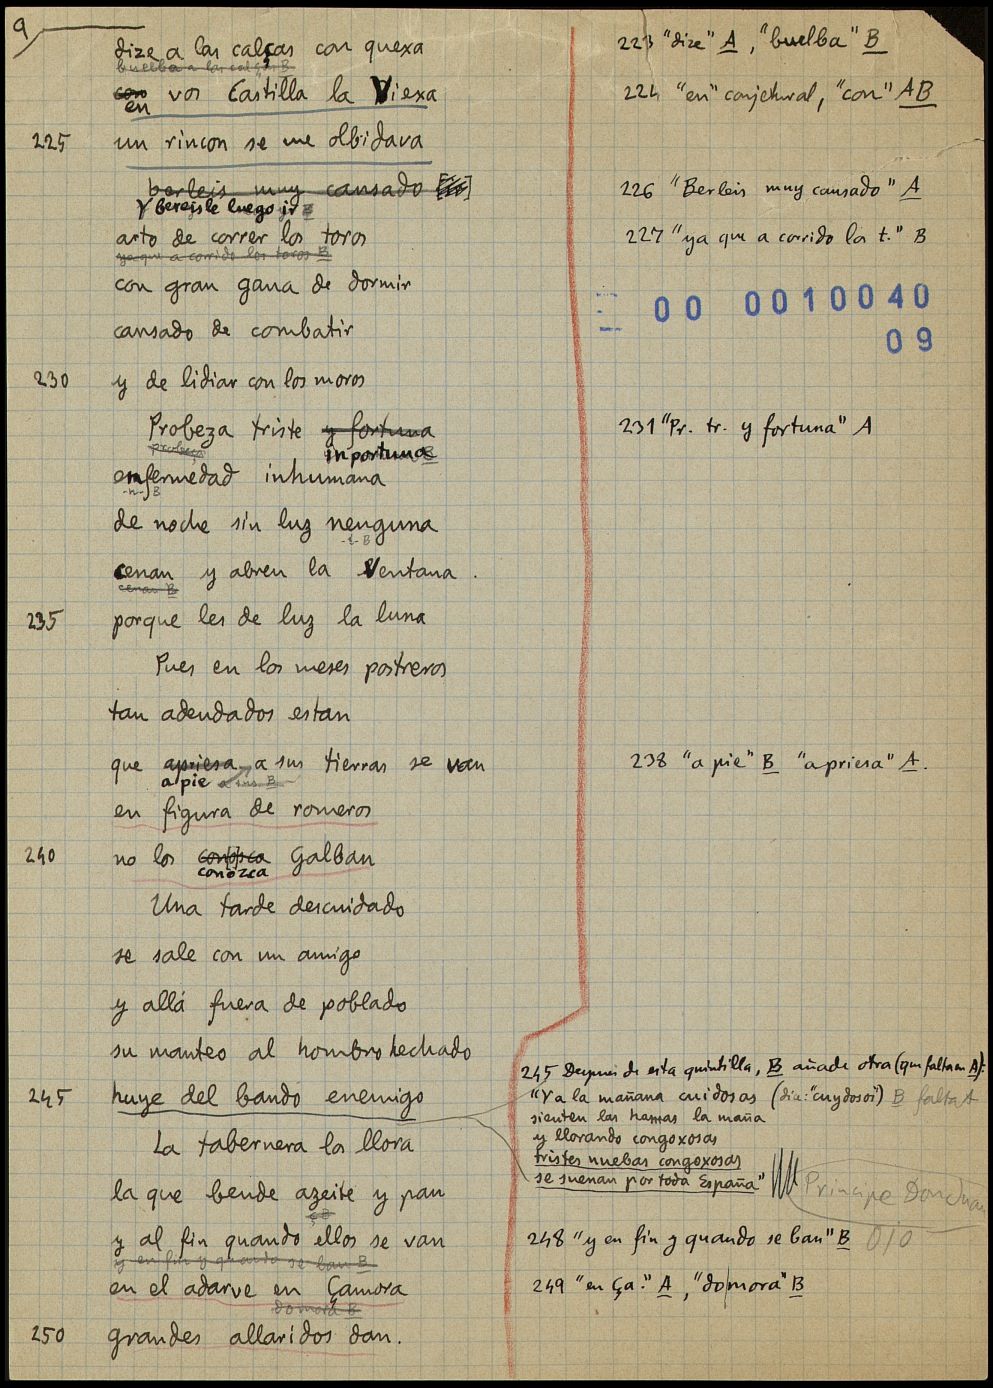 9
dize a las calças con quexa
buelba a las calças B
con vos Castilla la Viexa
en
225 un rincon se me olbidava
berleis muy cansado
Y bereisle luego ir
arto de correr los toros
ya que a corrido los toros B
con gran gana de dormir
cansado de combatir
230 y de lidiar con los moros
Probeza triste y fortuna
probeça inportuna B
enfermedad inhumana
-n- B
de noche sin luz nenguna
-i- B
cenan y abren la Ventana.
cenan B
235 porque les de luz la luna
Pues en los meses postreros
tan adeudados estan
que apriesa a sus tierras se van
a pie a sus B
en figura de romeros
240 no los conosca Galban
conozca
Una tarde descuidado
se sale con un amigo
y allá fuera de poblado
su manteo al hombro hechado
245 huye del bando enemigo
La tabernera los llora
la que bende azeite y pan
çB
y al fin quando ellos se van
y en fin y quando se ban B
en el adarve en Çamora
do mora B
250 grandes allaridos dan.
223 "dize" A, "buelba" B
224 "en" conjetural, "con" AB
226 "Berleis muy cansado" A
227 "ya que a corrido los t." B
00 0010040
09
231 "Pr. tr. y fortuna" A
238 "a pie" B "apriesa" A.
245 Después de esta quintilla, B añade otra (que falta en A):
"Ya la mañana cuidosas (dia: "cuydosos") B falta A
sienten las hamas la maña
y llorando congoxosas
tristes nuebas congoxosas
se suenan por toda España"
Principe Don Juan
248 "y en fin y quando se ban" B OJO
249 "en Ça." A, "do mora" B